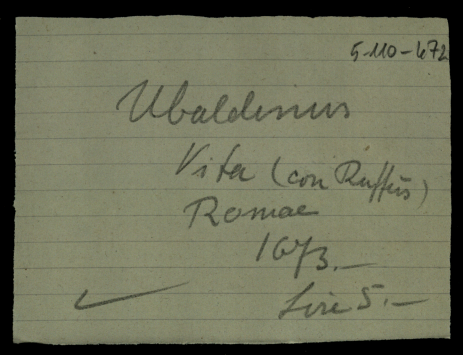 5-110-672
Ubaldinus
Vita (con Ruffus)
Romae
1673.—
Lire 5.—